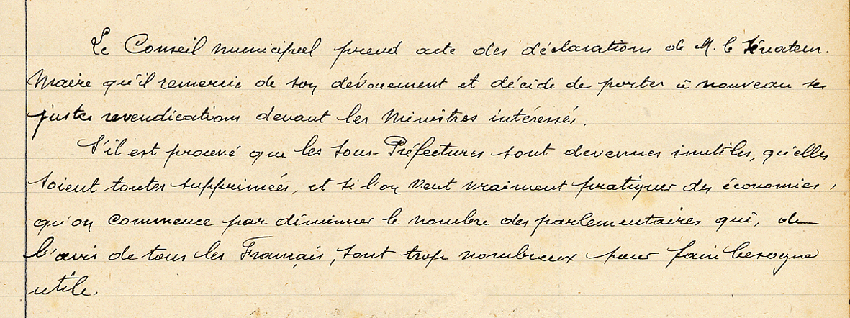 Le Conseil municipal prend acte des déclarations de M. le Sénateur.
Maire qu'il remercie de son dévouement et décide de porter à nouveau ses
justes revendications devant les Ministres intéressés.
S'il est prouvé que les Sous-Préfectures sont devenues inutiles, qu'elles
soient toutes supprimées, et si l'on veut vraiment pratiquer des économies,
qu'on commence par diminuer le nombre des parlementaires qui, de
l'avis de tous les Français, sont trop nombreux pour faire besogne
utile.